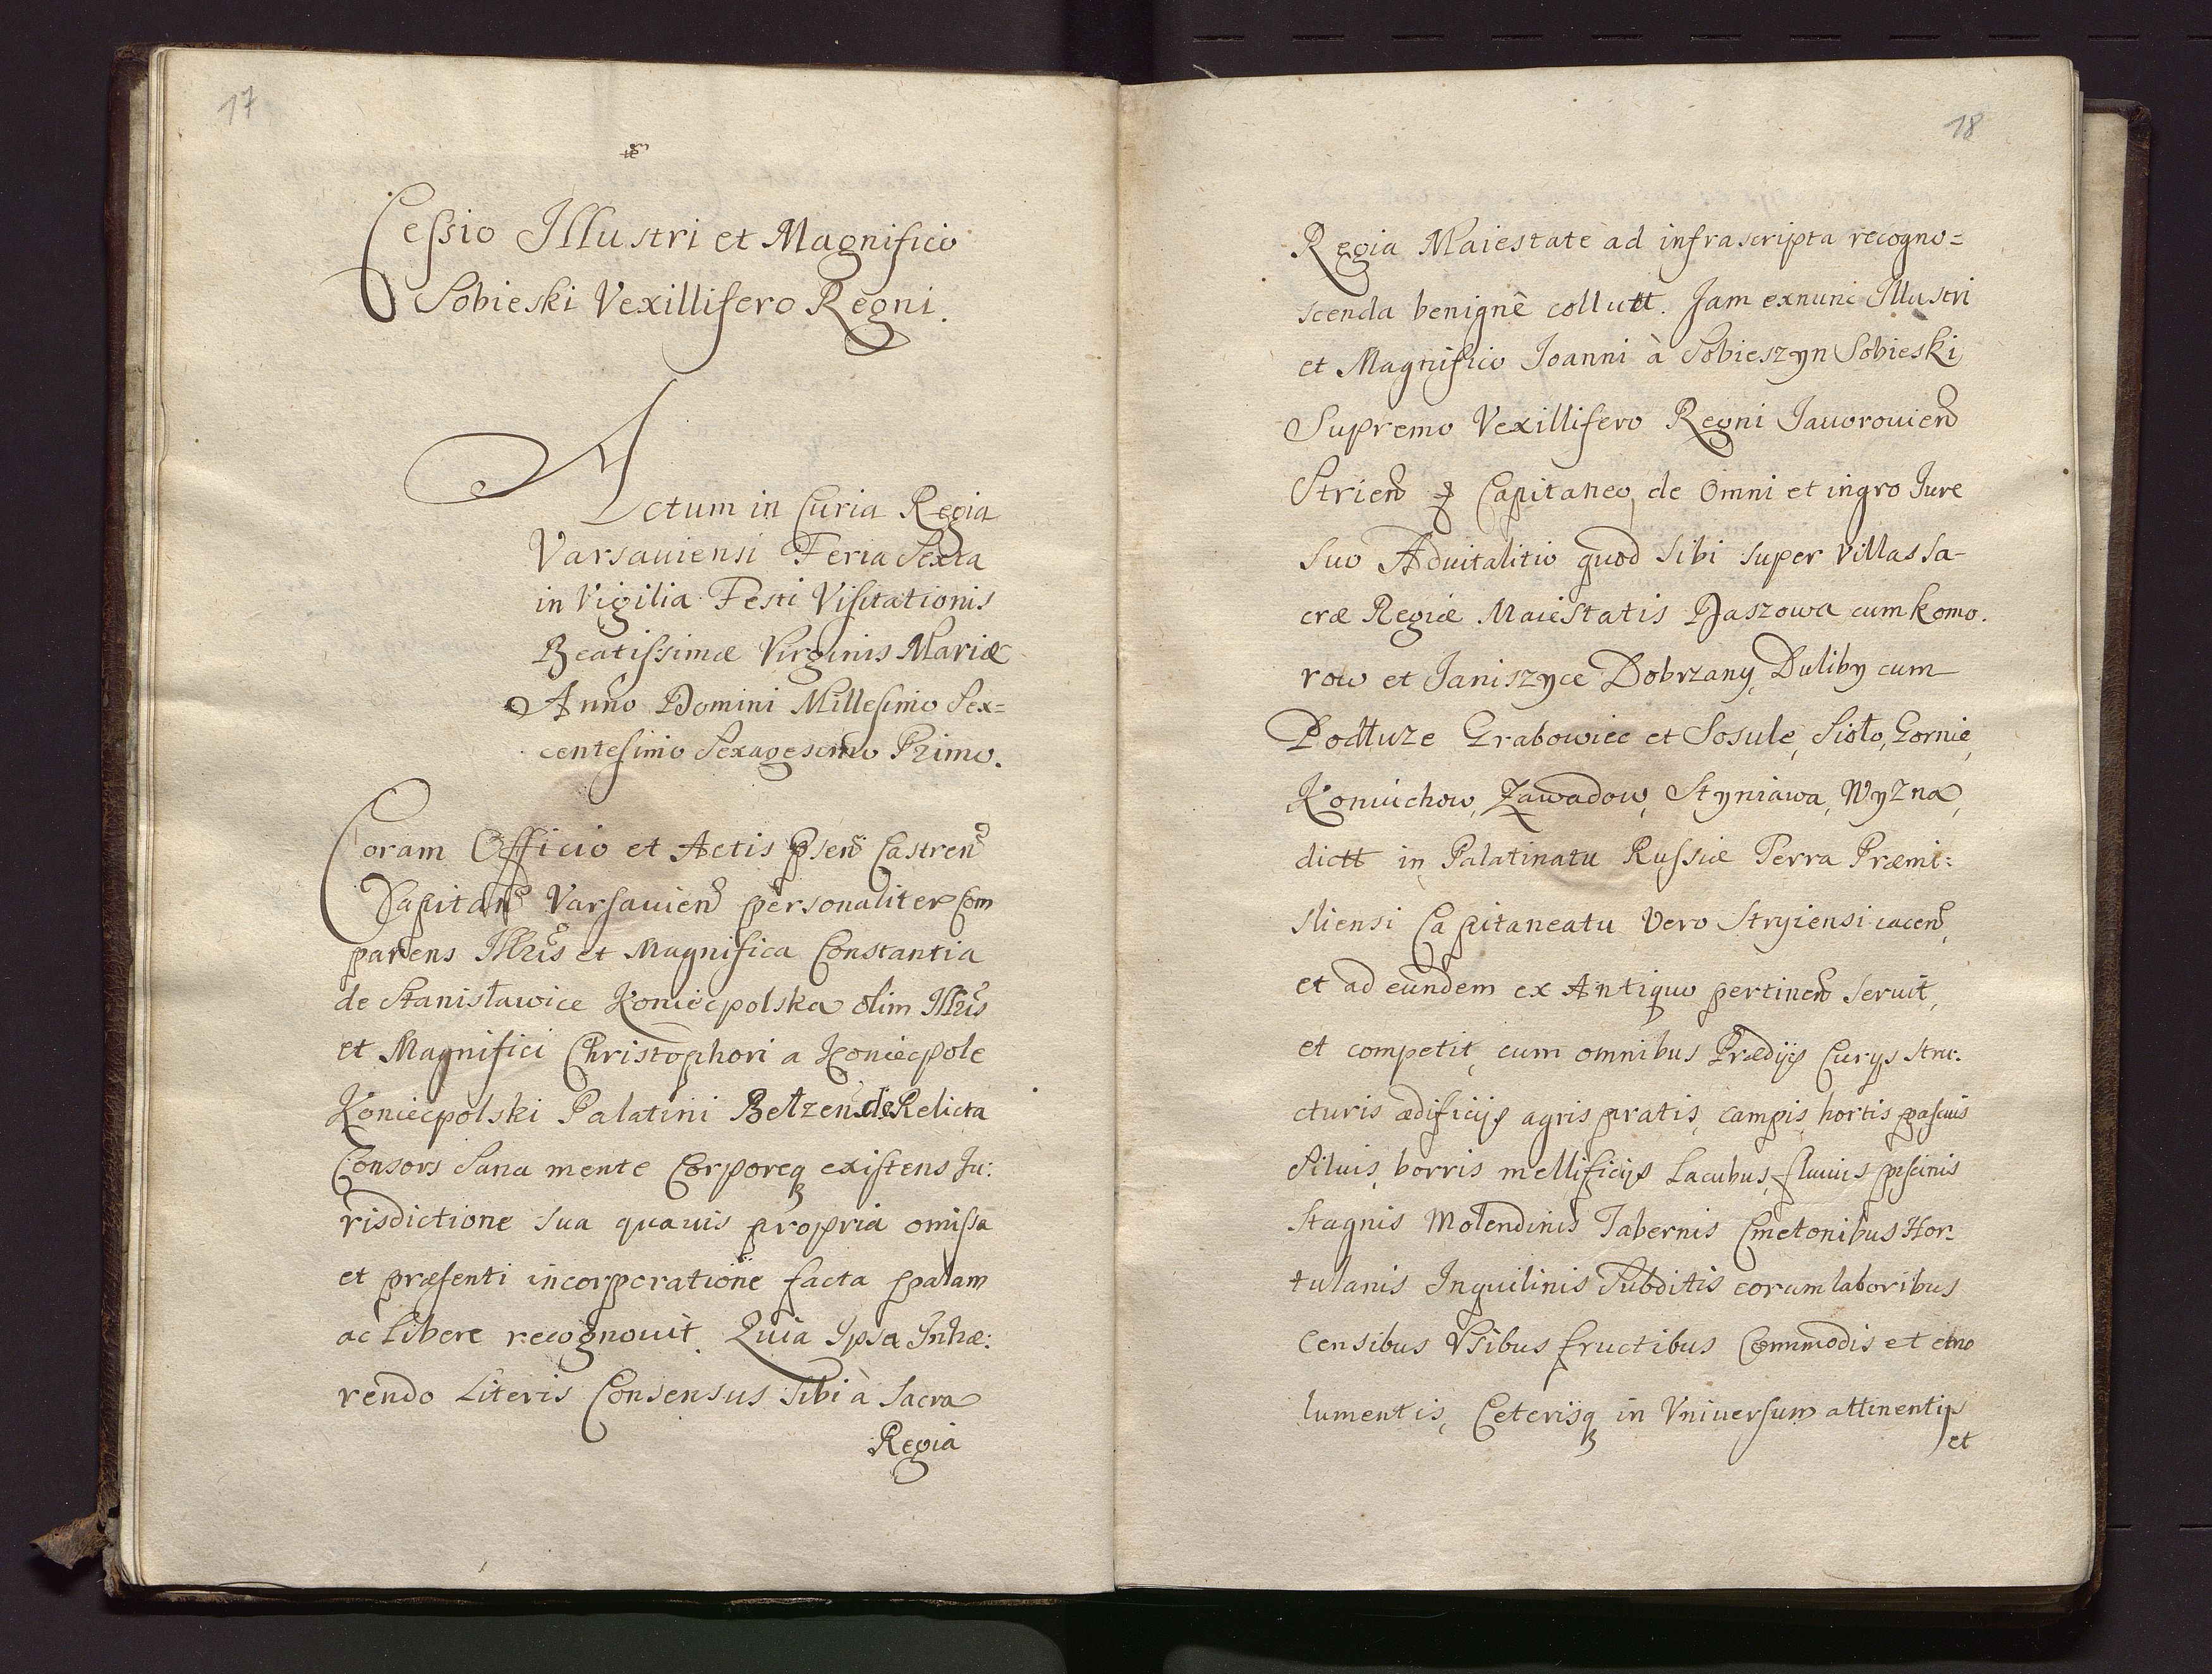 17
Cessio Illustri et Magnifico
Sobieski Vexillifero Regni.
Actum in Curia Regia
Varsauiensi Feria Sexta
in Vigilia Festi Visitationis
Beatissimæ Virginis Mariæ
Anno Domini Millesimo Sex=
centesimo Sexagesimo Primo.
Coram Officio et Actis psen Castren
Capitan Varsauien personaliter Com
parens Illris et Magnifica Constantia
de Stanisławice Koniecpolska olim Illris
et Magnifici Christophori a Koniecpole
Koniecpolski Palatini Bełzen Relicta
Consors Sana mente Corporeq existens Ju:
risdictione sua quauis propria omissa
et præsenti incorporatione facta palam
ac Libere recognouit. Quia Ipsa Inhæ:
rendo Literis Consensus sibi à Sacra
Regia
18
Regia Maiestate ad infrascripta recogno=
scenda benignè collutt. Jam exnunc Illustri
et Magnifico Joanni à Sobieszyn Sobieski
Supremo Vexillifero Regni Jauorouien
Strien Capitaneo, de Omni et ingro Jure
Suo Aduitalitio quod sibi super Villas Sa-
cræ Regiæ Maiestatis Daszowa cum Komo.
row et Janiszyce Dobrzany, Duliby cum
Podłuze Grabowiec et Sosule, Sioło, Gornie,
Koniuchow, Zawadow, Styniawa, Wyzna,
dictt in Palatinatu Russiæ Terra Præmi:
sliensi Capitaneatu Vero Stryiensi iacen,
et ad eundem ex Antiquo pertinen seruit,
et competit, cum omnibus Prædijs Curijs stru:
cturis ædificijs agris pratis, campis, hortis pascuis
Siluis, borris mellificijs Lacubus, fluuiis piscinis
Stagnis Molendinis Tabernis Cmetonibus Hor:
tulanis Inquilinis Subditis eorum laboribus
Censibus Vsibus fructibus Commodis et emo
lumentis, Ceterisq in Vniuersum attinentijs
et